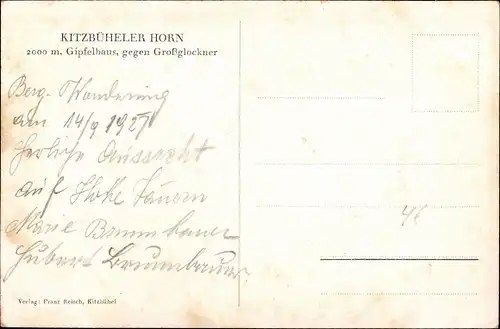 KITZBÜHELER HORN
2000 m, Gipfelhaus, gegen Großglockner
Berg-Wanderung
am 14/9 1927
Herliche Aussicht
auf Hohe Tauern
Marie Brunnbauer
Hubert Brunnbauer.
46
Verlag: Franz Reisch, Kitzbühel